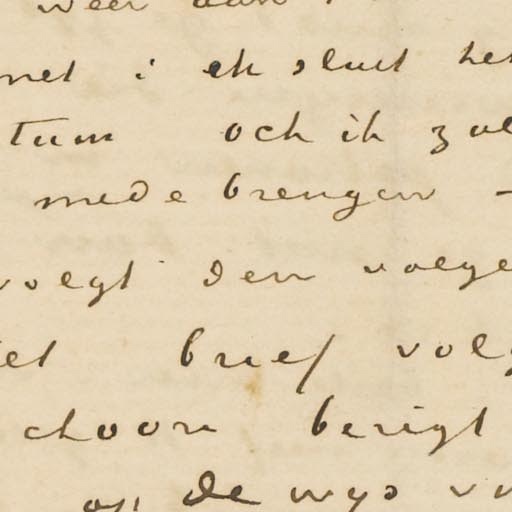 weer aan
met i ik sluit het
tum och ik zal
mede brengen —
volgt den volge
et brief volg
choon berigt
op de wys